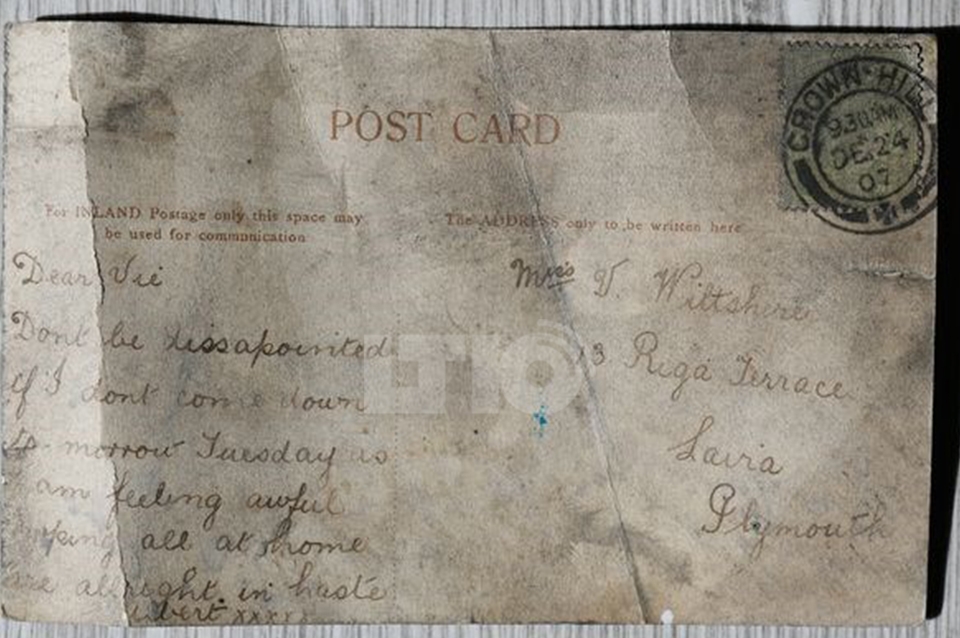 POST CARD
For INLAND Postage only this space may
be used for communication
The ADDRESS only to be written here
CROWN HILL
930AM
DE 24
07
Dear Vie
Dont be dissapointed
if I dont come down
to-morrow Tuesday as
am feeling awful
all at home
are allright. in haste
xxxxx
Miss V. Wiltshire
3 Riga Terrace
Laira
Plymouth
LTO